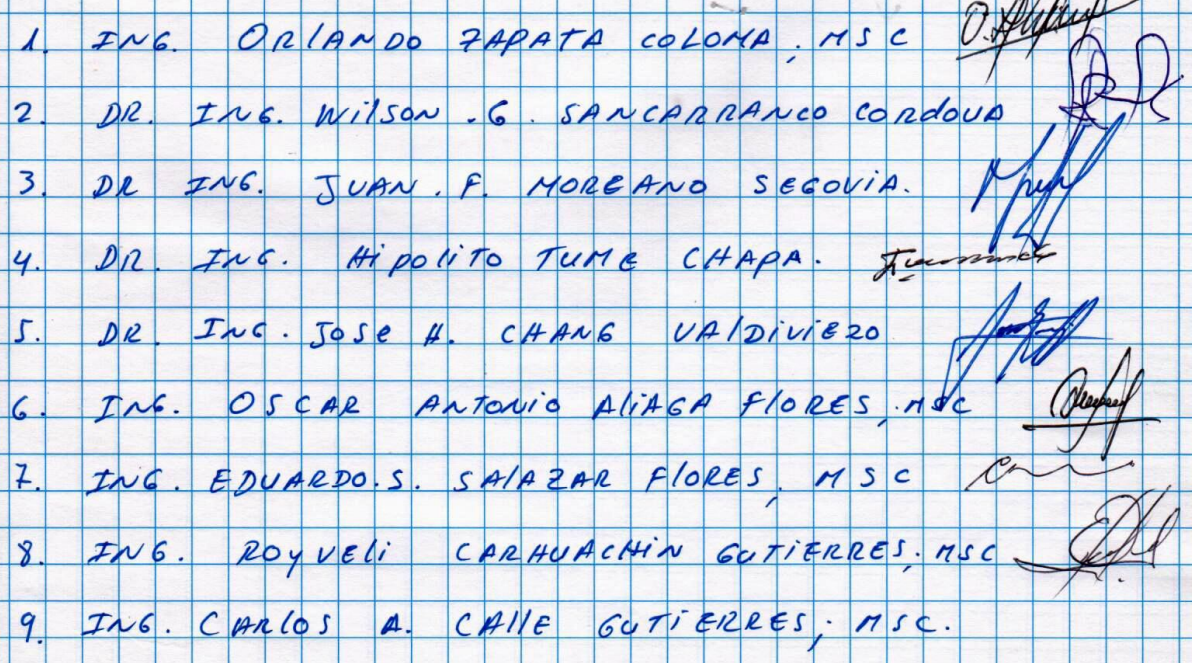 1. ING. ORlANDO ZAPATA COLOMA, MSC
2. DR. ING. Wilson .G. SANCARRANCO CORdOVA
3. DR ING. JUAN. F. MOREANO SEGOVIA.
4. DR. ING. HipoliTO TUMe CHAPA.
5. DR. ING. Jose H. CHANG VAlDiViEZO
6. ING. OSCAR ANTONiO AliAGA FlORES, MSC
7. ING. EDUARDO.S. SAlAZAR FlORES, MSC
8. ING. ROyveli CARHUACHiN GUTiERRES; MSC
9. ING. CARlOS A. CAllE GUTiERRES; MSC.